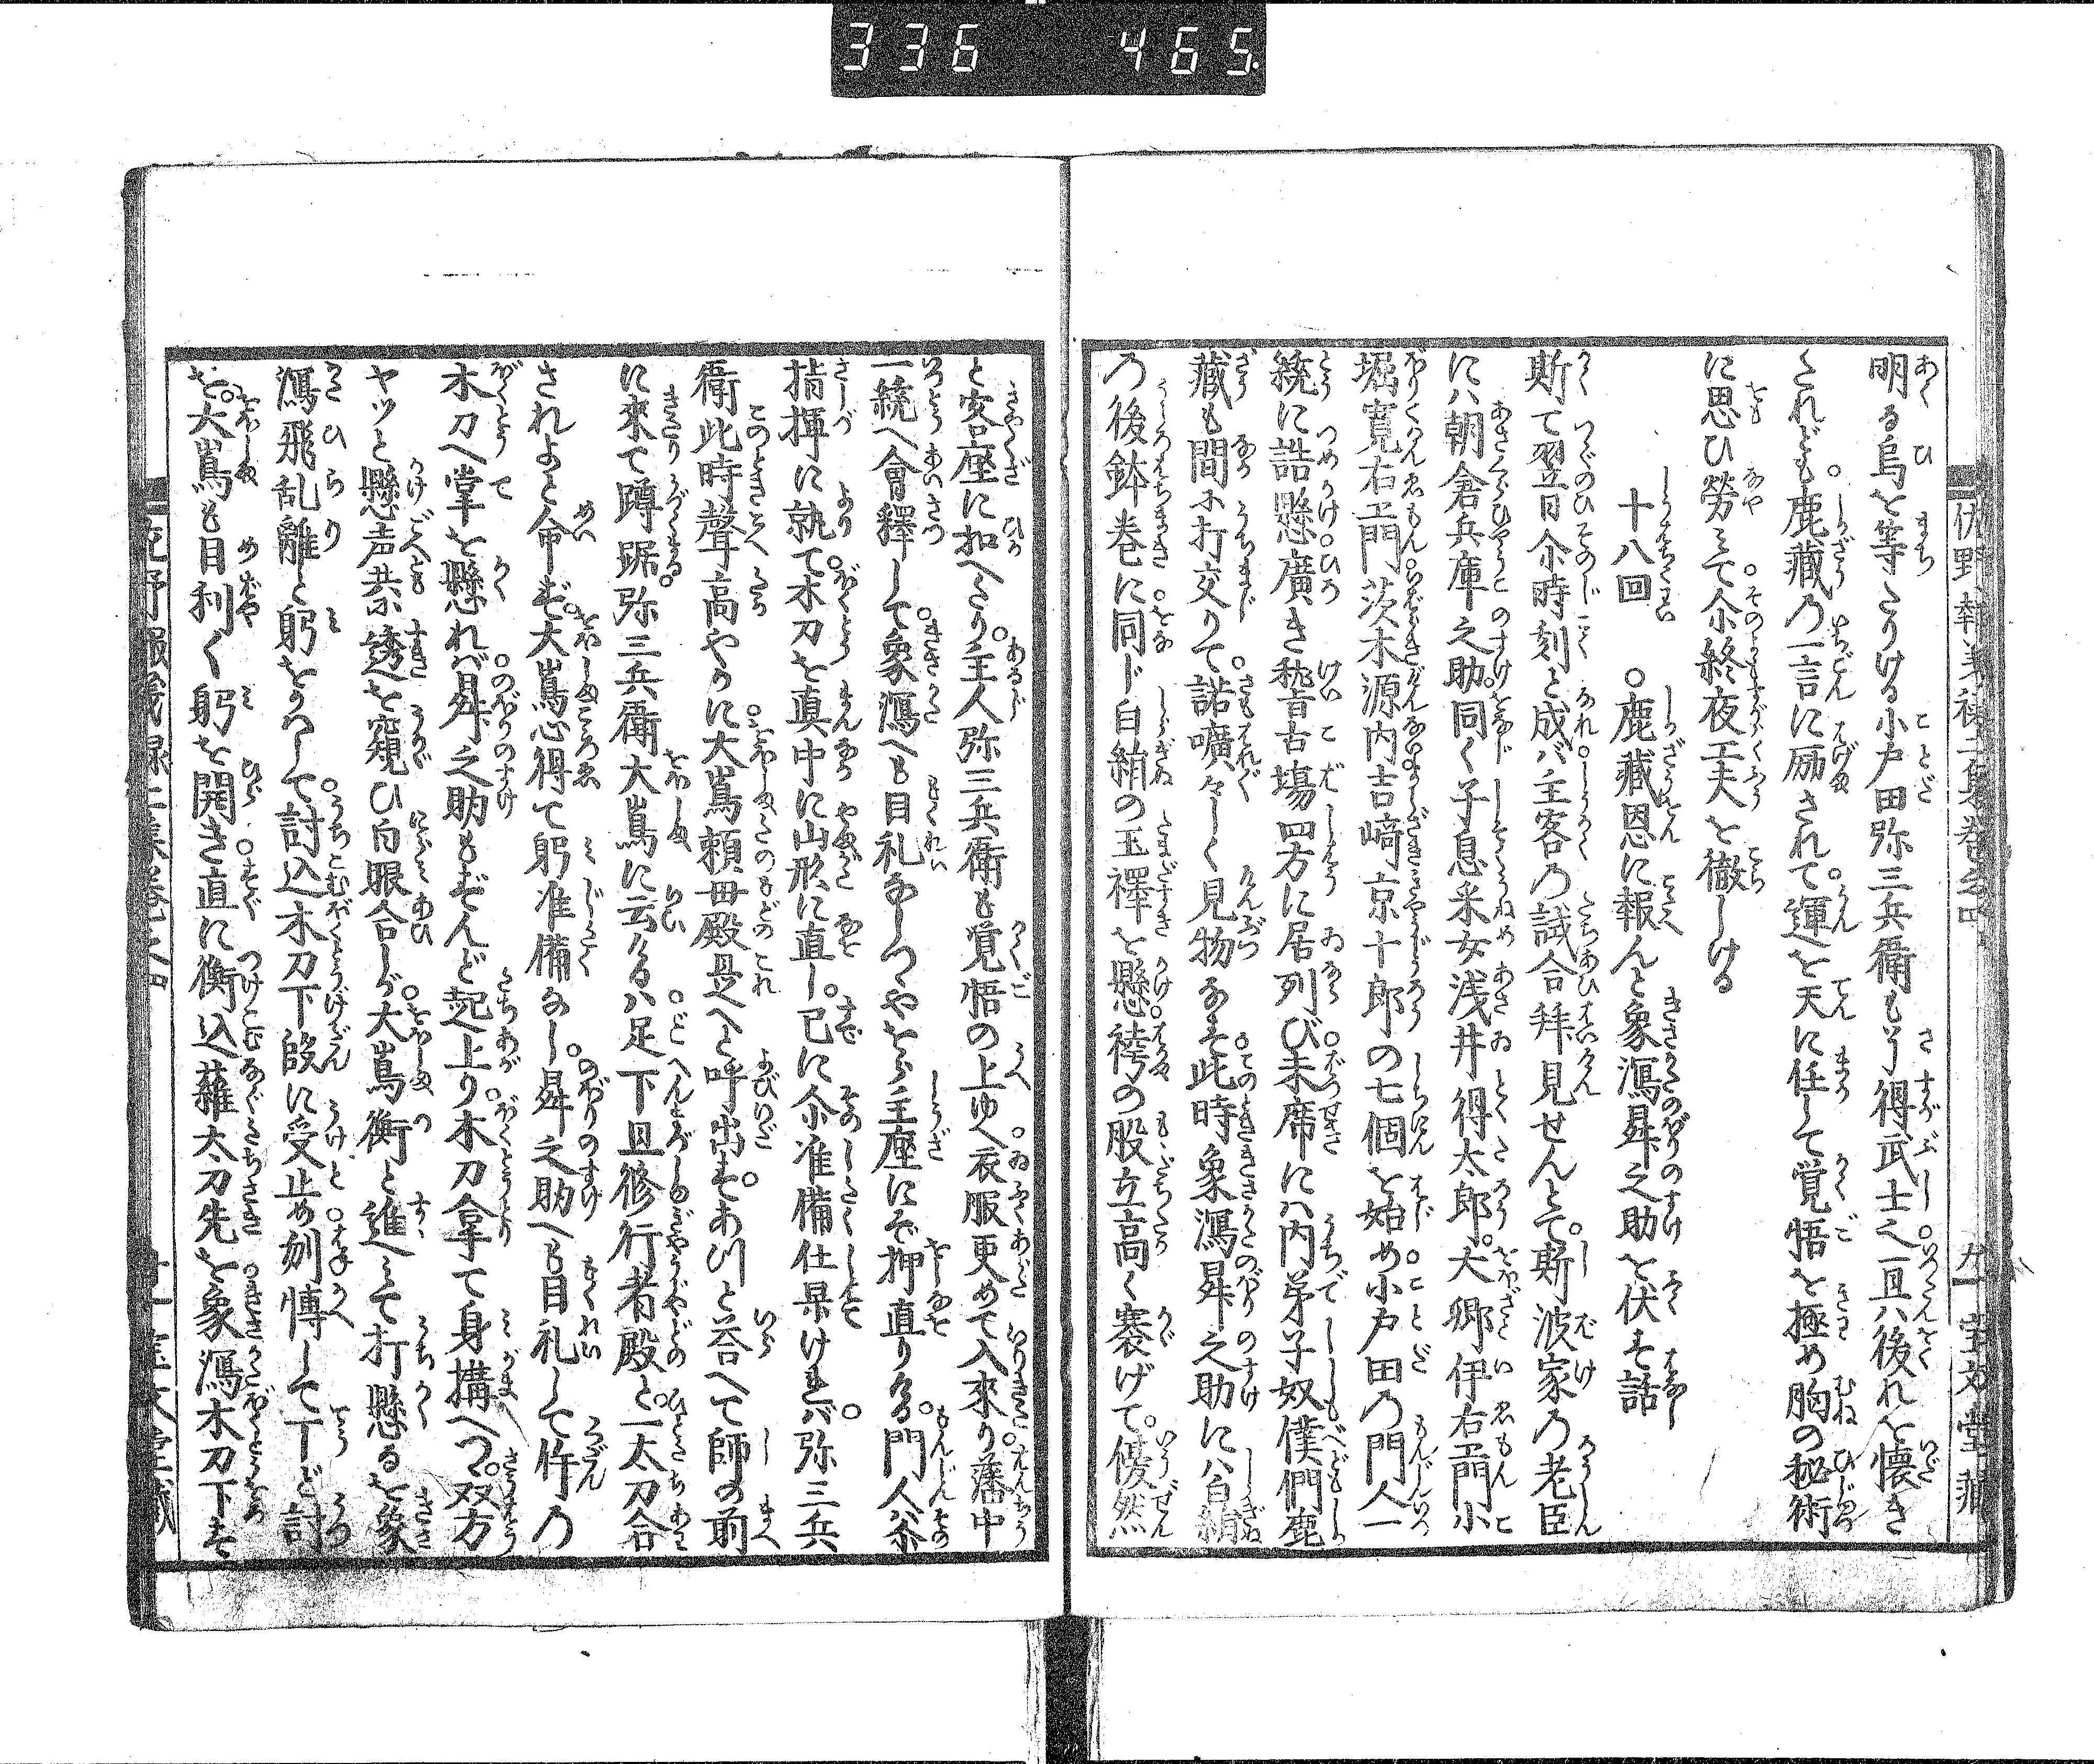 336 465
明る烏を等たりける小戸田弥三兵衛も頗得武士之一旦ハ後れを懐き
たれども。鹿藏の一言に励されて。運を天に任して覚悟を極め胸の秘術
に思ひ勞ミて。尒終夜工夫を徹しける
十八回 ○鹿藏恩に報んと象瀉昇之助を伏す話
斯て翌日尒時刻と成バ主客の試合拜見せんとて。斯波家の老臣
にハ朝倉兵庫之助。同く子息釆女浅井得太郎。大郷伊右エ門小
堀寛右エ門茨木源内吉﨑京十郎の七個を始め。小戸田の門人一
統に詰懸。廣き稽古塲四方に居列び。末席にハ内弟子奴僕們鹿
藏も間に打交りて。諾嚝々しく見物なす。此時象瀉昇之助にハ白絹
の後鉢巻に。同ド白絹の玉襷を懸。袴の股立高く褰げて。優然
と客座に扣へたり。主人弥三兵衛も覚悟の上ゆへ。衣服更めて入來り。藩中
一統へ會釋して。象瀉へも目礼なしつゝやをら主座にぞ押直りける。門人尒
指揮に執て。木刀を真中に山形に直し。已に尒准備仕果けれバ。弥三兵
衛此時聲高やかに。大嶌頼母殿是へと呼出す。あいと荅へて師の前
に來て蹲踞る。弥三兵衛大嶌に云けるハ。足下且修行者殿と。一太刀合
されよと命ず。大嶌心得て躬准備なし。昇之助へも目礼して件の
木刀へ掌を懸れバ。昇之助もずんど起上り。木刀拿て身搆へつ。双方
ヤツと懸声共。透を窺ひ白眼合しが。大嶌衝と進ミて打懸るを象
瀉飛乱離と躬をかハして。討込木刀下段に受止め刎愽して丁ど討
を。大嶌も目利く躬を開き。直に衝込薙太刀先を。象瀉木刀下す